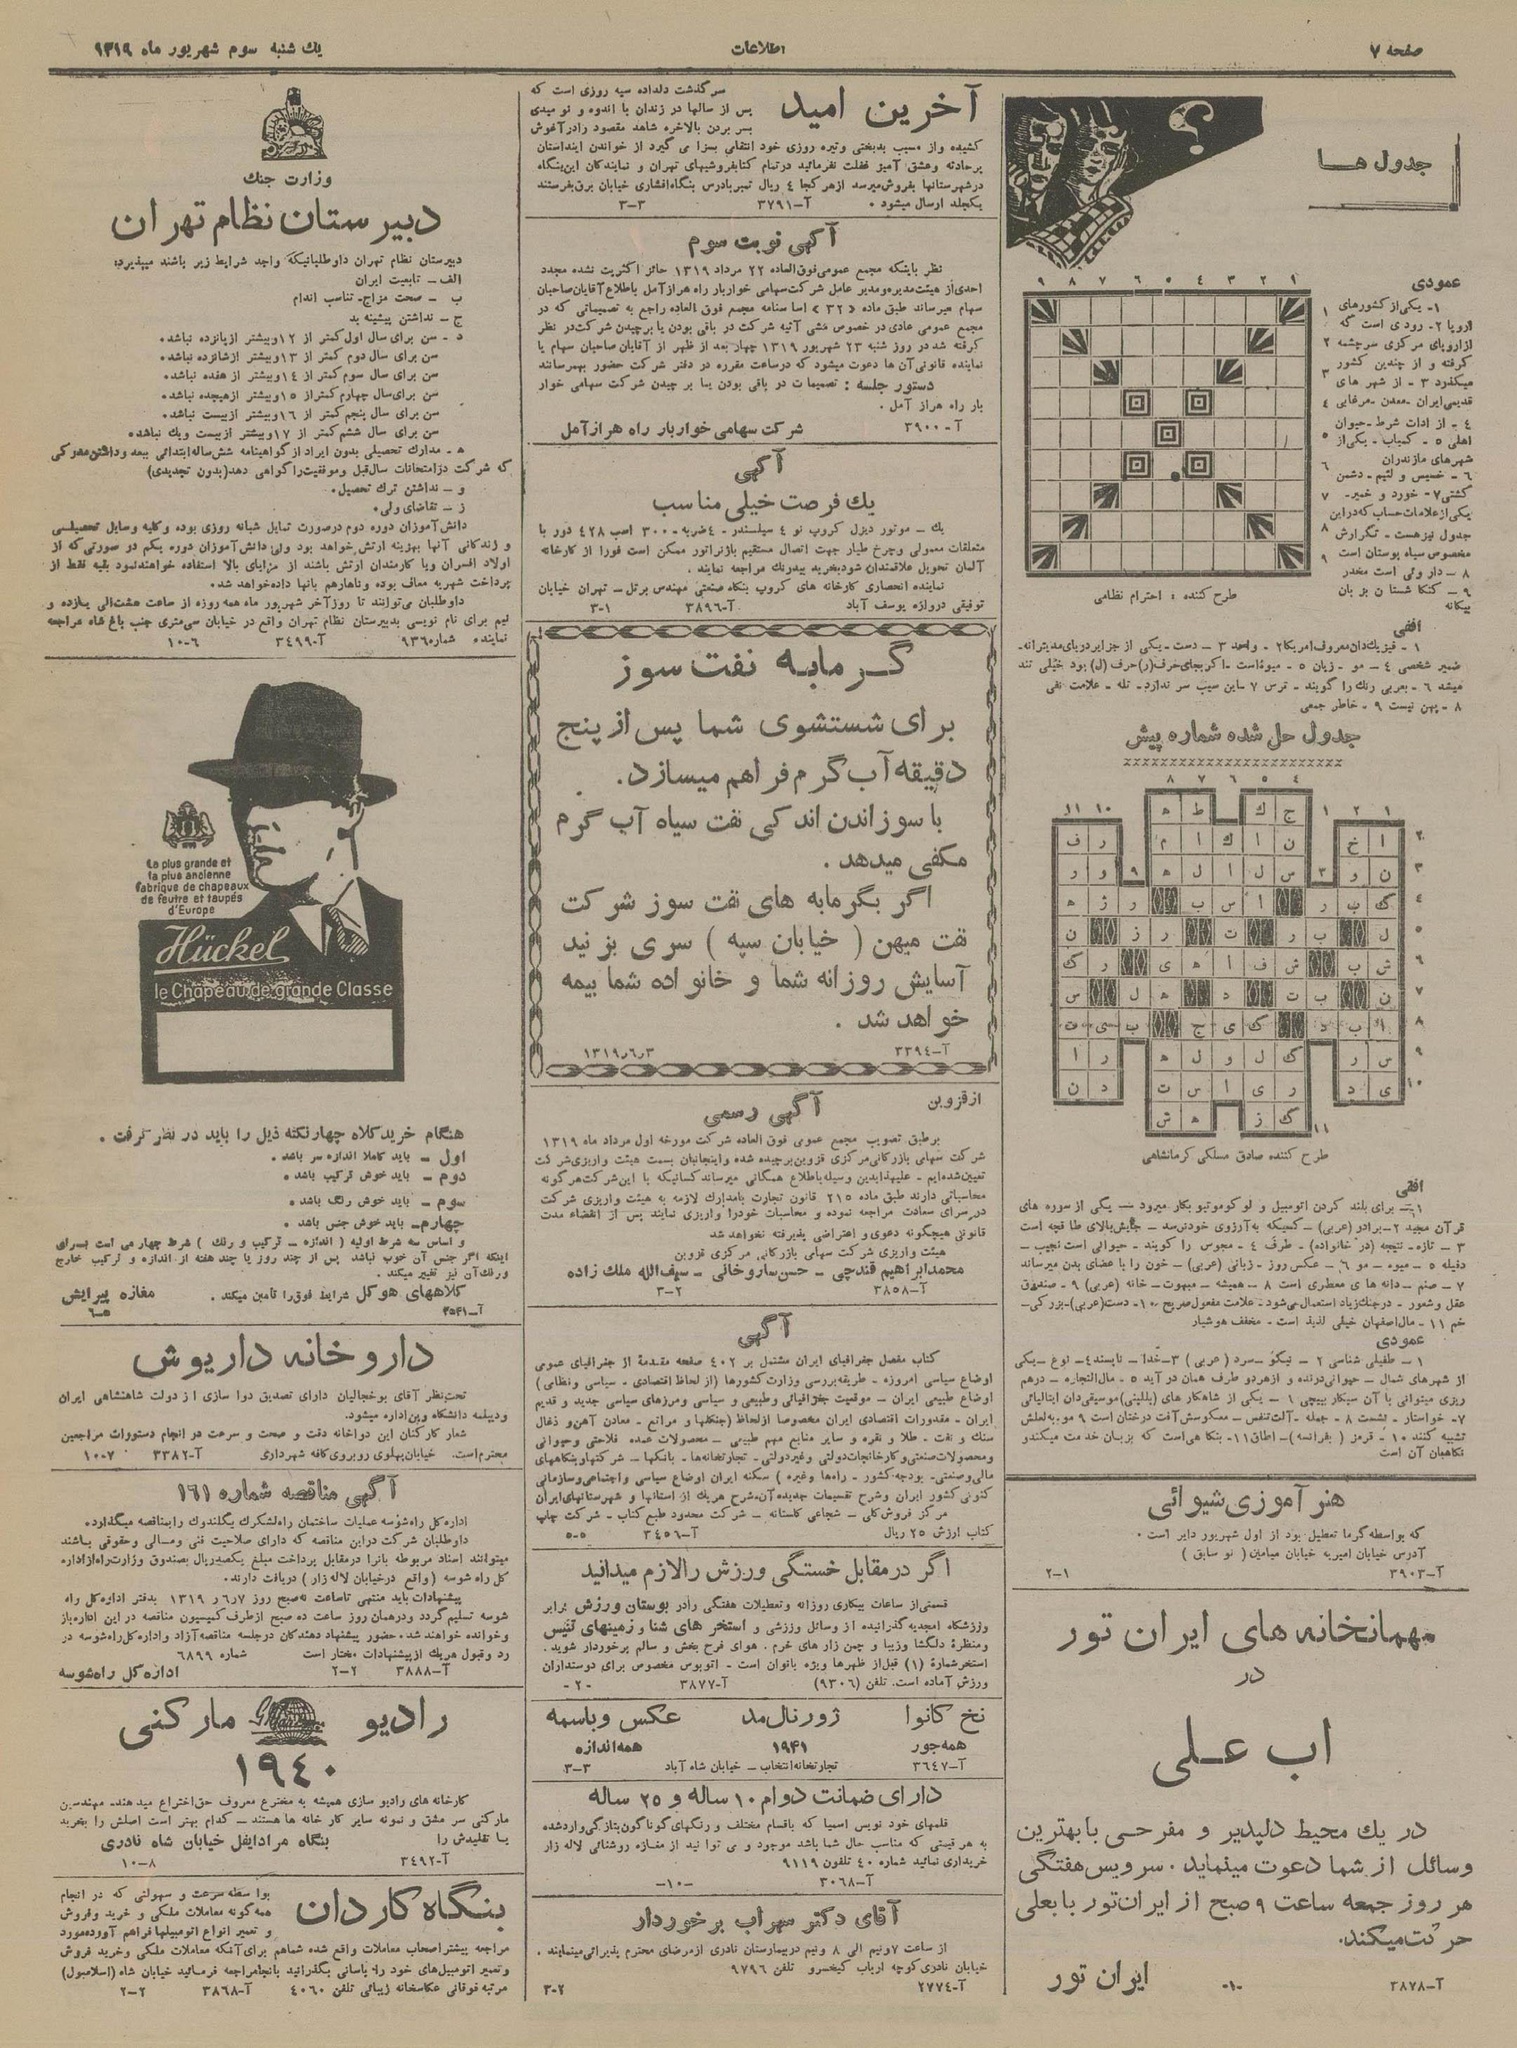 صفحه ۷
اطلاعات
یك شنبه سوم شهریور ماه ۱۳۱۹
جدول ها
عمودی
۱- یکی از کشورهای
اروپا ۲- رودی است که
از اروپای مرکزی سرچشمه
گرفته و از چندین کشور
میگذرد ۳- از شهر های
قدیمی ایران -معدن -مرغابی
۴ - از ادات شرط -حیوان
اهلی ۵ - کمیاب - یکی از
شهرهای مازندران
۶ - خسیس و لئیم - دشمن
کشتی ۷- خورد و خمیر -
یکی از علامات حساب که در این
جدول نیز هست - تگرارش
مخصوص سیاه پوستان است
۸ - داروئی است مخدر
۹ - کنکاشستان بزبان
بیگانه
۱ ۲ ۳ ۴ ۵ ۶ ۷ ۸ ۹
طرح کننده : احترام نظامی
افقی
۱ - فیزیك دان معروف امریکا ۲ - واحد ۳ - دست - یکی از جزایر دریای مدیترانه -
ضمیر شخصی ۴ - مو - زیان ۵ - میوه است - اگر بجای حرف (ر) حرف (ل) بود خیلی تند
میشد ۶ - بعربی رنگ را گویند - ترس ۷ - این سیب سر ندارد - تله - علامت نفی
۸ - پهن نیست ۹ - خاطر جمعی
جدول حل شده شماره پیش
طرح کننده صادق مسلکی کرمانشاهی
افقی
۱ - برای بلند کردن اتومبیل و لوکوموتیو بکار میرود - یکی از سوره های
قرآن مجید ۲ - برادر (عربی) - کسیکه به آرزوی خود نرسد - جایش بالای طاقچه است
۳ - تازه - نتیجه (در خانواده) - طرف ۴ - مجوس را گویند - حیوانی است نجیب -
دفیله ۵ - میوه - مو ۶ - عکس روز - زبانی (عربی) - خون را باعضای بدن میرساند
۷ - صنم - دانه های معطری است ۸ - همیشه - مبهوت - خانه (عربی) ۹ - صندوق
عقل و شعور - در جنگ زیاد استعمال می شود - علامت مفعول صریح ۱۰ - دست (عربی) - بزرگی -
خم ۱۱ - مال اصفهان خیلی لذیذ است - مخفف هوشیار
عمودی
۱ - طفیلی شناسی ۲ - نیکو - سرد (عربی) ۳ - خدا - ناپسند ۴ - نوع - یکی
از شهرهای شمال - حیوانی درنده و از هر دو طرف همان در آید ۵ - مال التجاره - درهم
ریزی میتوانی با آن سیگار بپیچی ۶ - یکی از شاهکار های (بللینی) موسیقی دان ایتالیائی
۷ - خواستار - نشست ۸ - جمله - آلت تنفس - معکوسش آفت درختان است ۹ مو به لعلش
تشبیه کنند ۱۰ - قرمز (بفرانسه) - اطاق ۱۱ - بنگاهی است که بزبان خدمت میکند و
نگاهبان آن است
هنر آموزی شیوائی
که بواسطه گرما تعطیل بود از اول شهریور دایر است .
آدرس خیابان امیریه خیابان میامین ( نو سابق )
آ-۳۹۰۳ ۲-۱
مهمانخانه های ایران تور
در
اب علی
در یك محیط دلپذیر و مفرحی با بهترین
وسائل از شما دعوت مینماید . سرویس هفتگی
هر روز جمعه ساعت ۹ صبح از ایران تور بابعلی
حرکت میکند.
ایران تور
آ-۳۸۷۸ -۱-
آخرین امید
سرگذشت دلداده سیه روزی است که
پس از سالها در زندان با اندوه و نو میدی
بسر بردن بالاخره شاهد مقصود را در آغوش
کشیده و از مسبب بدبختی و تیره روزی خود انتقامی بسزا می گیرد از خواندن اینداستان
پر حادثه و عشق آمیز غفلت نفرمائید در تمام کتابفروشیهای تهران و نمایندگان این بنگاه
در شهرستانها بفروش میرسد از هر کجا ۴ ریال تمبر بادرس بنگاه افشاری خیابان برق بفرستند
یکجلد ارسال میشود . آ-۳۷۹۱ ۳-۳
آگهی نوبت سوم
نظر باینکه مجمع عمومی فوق العاده ۲۲ مرداد ۱۳۱۹ حائز اکثریت نشده مجدد
احدی از هیئت مدیره و مدیر عامل شرکت سهامی خواربار راه هراز آمل باطلاع آقایان صاحبان
سهام میرساند طبق ماده «۳۲» اساسنامه مجمع فوق العاده راجع به تصمیماتی که در
مجمع عمومی عادی در خصوص مشی آتیه شرکت در باقی بودن یا برچیدن شرکت در نظر
گرفته شد در روز شنبه ۲۳ شهریور ۱۳۱۹ چهار بعد از ظهر از آقایان صاحبان سهام یا
نماینده قانونی آن ها دعوت میشود که در ساعت مقرره در دفتر شرکت حضور بهمرسانند
دستور جلسه : تصمیمات در باقی بودن یا بر چیدن شرکت سهامی خوار
بار راه هراز آمل .
آ-۳۹۰۰ شرکت سهامی خواربار راه هراز آمل
آگهی
یك فرصت خیلی مناسب
یك - موتور دیزل کروپ نو ۴ سیلندر - ۴ ضربه - ۳۰۰ اسب ۴۲۸ دور با
متعلقات معمولی و چرخ طیار جهت اتصال مستقیم باژنراتور ممکن است فورا از کارخانه
آلمان تحویل علاقمندان شود بخرید بیدرنك مراجعه نمایند .
نماینده انحصاری کارخانه های کروپ بنگاه صنعتی مهندس برتل - تهران خیابان
توفیقی دروازه یوسف آباد آ-۳۸۹۶ ۳-۱
گرمابه نفت سوز
برای شستشوی شما پس از پنج
دقیقه آب گرم فراهم میسازد.
با سوزاندن اندکی نفت سیاه آب گرم
مکفی میدهد .
اگر بگرمابه های نفت سوز شرکت
نفت میهن ( خیابان سپه ) سری بزنید
آسایش روزانه شما و خانواده شما بیمه
خواهد شد .
آ-۳۳۹۴ ۱۳۱۹٫۶٫۳
از قزوین
آگهی رسمی
بر طبق تصویب مجمع عمومی فوق العاده شرکت مورخه اول مرداد ماه ۱۳۱۹
شرکت سهامی بازرگانی مرکزی قزوین برچیده شده و اینجانبان بسمت هیئت واریزی شرکت
تعیین شده ایم - علیهذا بدین وسیله باطلاع همگانی میرساند کسانیکه با این شرکت هرگونه
محاسباتی دارند طبق ماده ۲۱۵ قانون تجارت بامدارك لازمه به هیئت واریزی شرکت
در سرای سعادت مراجعه نموده و محاسبات خود را واریزی نمایند پس از انقضاء مدت
قانونی هیچگونه دعوی و اعتراضی پذیرفته نخواهد شد
هیئت واریزی شرکت سهامی بازرگانی مرکزی قزوین
محمد ابراهیم قندچی - حسن ساروخانی - سیف الله ملك زاده
آ-۳۸۵۸ ۳-۲
آگهی
کتاب مفصل جغرافیای ایران مشتمل بر ۴۰۲ صفحه مقدمة از جغرافیای عمومی
اوضاع سیاسی امروزه - طریقه بررسی وزارت کشورها (از لحاظ اقتصادی - سیاسی و نظامی)
اوضاع طبیعی ایران - موقعیت جغرافیائی و طبیعی و سیاسی و مرزهای سیاسی جدید و قدیم
ایران - مقدورات اقتصادی ایران مخصوصا از لحاظ (جنگلها و مراتع - معادن آهن و ذغال
سنك و نفت - طلا و نقره و سایر منابع مهم طبیعی - محصولات عمده فلاحتی و حیوانی
و محصولات صنعتی و کارخانجات دولتی و غیر دولتی - تجارتخانه ها - بانکها - شرکتها و بنگاههای
مالی و صنعتی - بودجه کشور - راه ها وغیره ) سکنه ایران اوضاع سیاسی و اجتماعی و سازمانی
کنونی کشور ایران و شرح تقسیمات جدیده آن - شرح هریك از استانها و شهرستانهای ایران
مرکز فروش کلی - شجاعی کاستانه - شرکت محدود طبع کتاب - شرکت چاپ
کتاب ارزش ۲۵ ریال آ-۳۴۵۶ ۵-۵
اگر در مقابل خستگی ورزش را لازم میدانید
قسمتی از ساعات بیکاری روزانه و تعطیلات هفتگی را در بوستان ورزش برابر
ورزشگاه امجدیه گذرانیده از وسائل ورزشی و استخر های شنا و زمینهای تنیس
و منظرهٔ دلگشا و زیبا و چمن زار های خرم . هوای فرح بخش و سالم برخوردار شوید.
استخر شمارهٔ (۱) قبل از ظهرها ویژه بانوان است - اتوبوس مخصوص برای دوستداران
ورزش آماده است. تلفن (۹۳۰۶) آ-۳۸۷۷ -۲-
نخ کانوا ژورنال مد عکس و باسمه
همه جور ۱۹۴۱ همه اندازه
آ-۳۶۴۷ تجارتخانه انتخاب - خیابان شاه آباد ۳-۳
دارای ضمانت دوام ۱۰ ساله و ۲۵ ساله
قلمهای خود نویس اسمیا که باقسام مختلف و رنگهای گوناگون بتازگی وارد شده
به هر قیمتی که مناسب حال شما باشد موجود و می توانید از مغازه روشنائی لاله زار
خریداری نمائید شماره ۴۰ تلفون ۹۱۱۹
آ-۳۰۶۸ -۱۰-
آقای دکتر سهراب برخوردار
از ساعت ۷ ونیم الی ۸ ونیم در بیمارستان نادری از مرضای محترم پذیرائی مینمایند .
خیابان نادری کوچه ارباب کیخسرو تلفن ۹۷۹۶
آ-۲۷۷۴ ۳-۲
وزارت جنك
دبیرستان نظام تهران
دبیرستان نظام تهران داوطلبانیکه واجد شرایط زیر باشند میپذیرد:
الف - تابعیت ایران
ب - صحت مزاج - تناسب اندام
ج - نداشتن پیشینه بد
د - سن برای سال اول کمتر از ۱۲ وبیشتر از پانزده نباشد.
سن برای سال دوم کمتر از ۱۳ وبیشتر از شانزده نباشد.
سن برای سال سوم کمتر از ۱۴ وبیشتر از هفده نباشد.
سن برای سال چهارم کمتر از ۱۵ وبیشتر از هیجده نباشد.
سن برای سال پنجم کمتر از ۱۶ وبیشتر از بیست نباشد.
سن برای سال ششم کمتر از ۱۷ وبیشتر از بیست ویك نباشد.
ه - مدارك تحصیلی بدون ایراد از گواهینامه شش ساله ابتدائی ببعد و داشتن مدرکی
که شرکت در امتحانات سال قبل و موفقیت را گواهی دهد (بدون تجدیدی)
و - نداشتن ترك تحصیل.
ز - تقاضای ولی.
دانش آموزان دوره دوم در صورت تمایل شبانه روزی بوده و کلیه وسایل تحصیلی
و زندگانی آنها بهزینه ارتش خواهد بود ولی دانش آموزان دوره یکم در صورتی که از
اولاد افسران ویا کارمندان ارتش باشند از مزایای بالا استفاده خواهند نمود بقیه فقط از
پرداخت شهریه معاف بوده و ناهار هم بآنها داده خواهد شد.
داوطلبان می توانند تا روز آخر شهریور ماه همه روزه از ساعت هشت الی یازده و
نیم برای نام نویسی بدبیرستان نظام تهران واقع در خیابان سی متری جنب باغ شاه مراجعه
نمایند شماره ۹۳۶ آ-۳۴۹۹ ۱۰-۶
La plus grande et
la plus ancienne
fabrique de chapeaux
de feutre et taupés
d'Europe
Hückel
le Chapeau de grande Classe
هنگام خرید کلاه چهار نکته ذیل را باید در نظر گرفت .
اول - باید کاملا اندازه سر باشد .
دوم - باید خوش ترکیب باشد .
سوم - باید خوش رنگ باشد .
چهارم - باید خوش جنس باشد .
و اساس سه شرط اولیه ( اندازه - ترکیب و رنك ) شرط چهارمی است برای
اینکه اگر جنس آن خوب نباشد پس از چند روز یا چند هفته از اندازه و ترکیب خارج
ورنك آن نیز تغییر میکند .
کلاههای هوکل شرایط فوق را تامین میکند . مغازه پیرایش
داروخانه داریوش
تحت نظر آقای بوخجالیان دارای تصدیق دوا سازی از دولت شاهنشاهی ایران
ودیپلمه دانشگاه وین اداره میشود.
شعار کارکنان این دواخانه دقت و صحت و سرعت در انجام دستورات مراجعین
محترم است. خیابان پهلوی روبروی کافه شهرداری آ-۳۳۸۲ ۱۰-۷
آگهی مناقصه شماره ۱۶۱
اداره کل راه شوسه عملیات ساختمان راه لشکرك بگلندوك را بمناقصه میگذارد.
داوطلبان شرکت در این مناقصه که دارای صلاحیت فنی و مالی و حقوقی باشند
میتوانند اسناد مربوطه بآنرا در مقابل پرداخت مبلغ یکصد ریال بصندوق وزارت راه از اداره
کل راه شوسه (واقع در خیابان لاله زار) دریافت دارند.
پیشنهادات باید منتهی تا ساعت نه صبح روز ۶٫۷ ر ۱۳۱۹ بدفتر اداره کل راه
شوسه تسلیم گردد و در همان روز ساعت ده صبح از طرف کمیسیون مناقصه در این اداره باز
و خوانده خواهند شد. حضور پیشنهاد دهندگان در جلسه مناقصه آزاد و اداره کل راه شوسه در
رد و قبول هر یك از پیشنهادات مختار است شماره ۶۸۹۹
آ-۳۸۸۸ ۲-۲ اداره کل راه شوسه
رادیو مارکنی
۱۹۴۰
کارخانه های رادیو سازی همیشه به مخترع معروف حق اختراع میدهند - مهندسین
مارکنی سر مشق و نمونه سایر کارخانه ها هستند - کدام بهتر است اصلش را بخرید
یا تقلیدش را بنگاه مراد ایفل خیابان شاه نادری
آ-۳۴۹۲ ۱۰-۸
بنگاه کاردان
بواسطه سرعت و سهولتی که در انجام
همه گونه معاملات ملکی و خرید و فروش
و تعمیر انواع اتومبیلها فراهم آورده مورد
مراجعه بیشتر اصحاب معاملات واقع شده شما هم برای آنکه معاملات ملکی و خرید فروش
و تعمیر اتومبیل های خود را بآسانی بگذرانید بآنجا مراجعه فرمائید خیابان شاه (اسلامبول)
مرتبه فوقانی عکاسخانه زیبائی تلفن ۴۰۶۰ آ-۳۸۶۸ ۲-۲